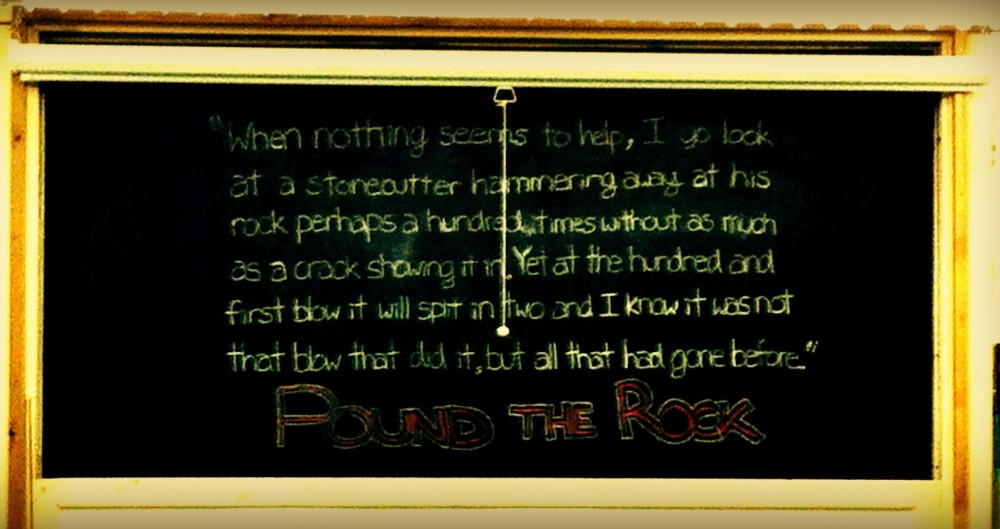 "When nothing seems to help, I go look
at a stonecutter hammering away at his
rock perhaps a hundred times without as much
as a crack showing it in. Yet at the hundred and
first blow it will split in two and I know it was not
that blow that did it, but all that had gone before."
POUND THE ROCK